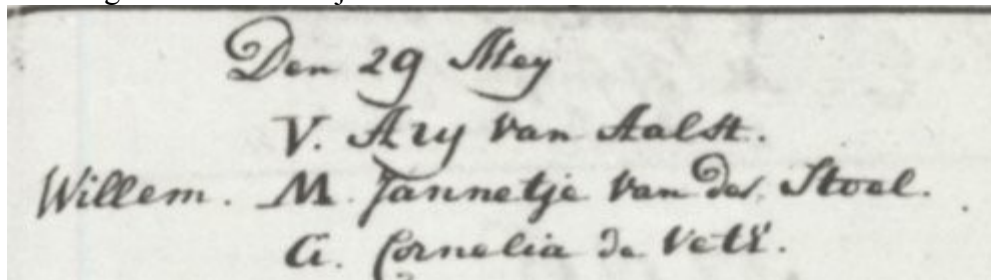 Den 29 Mey
V. Ary van Aalst.
Willem. M. Jannetje van der Stoel.
G. Cornelia de